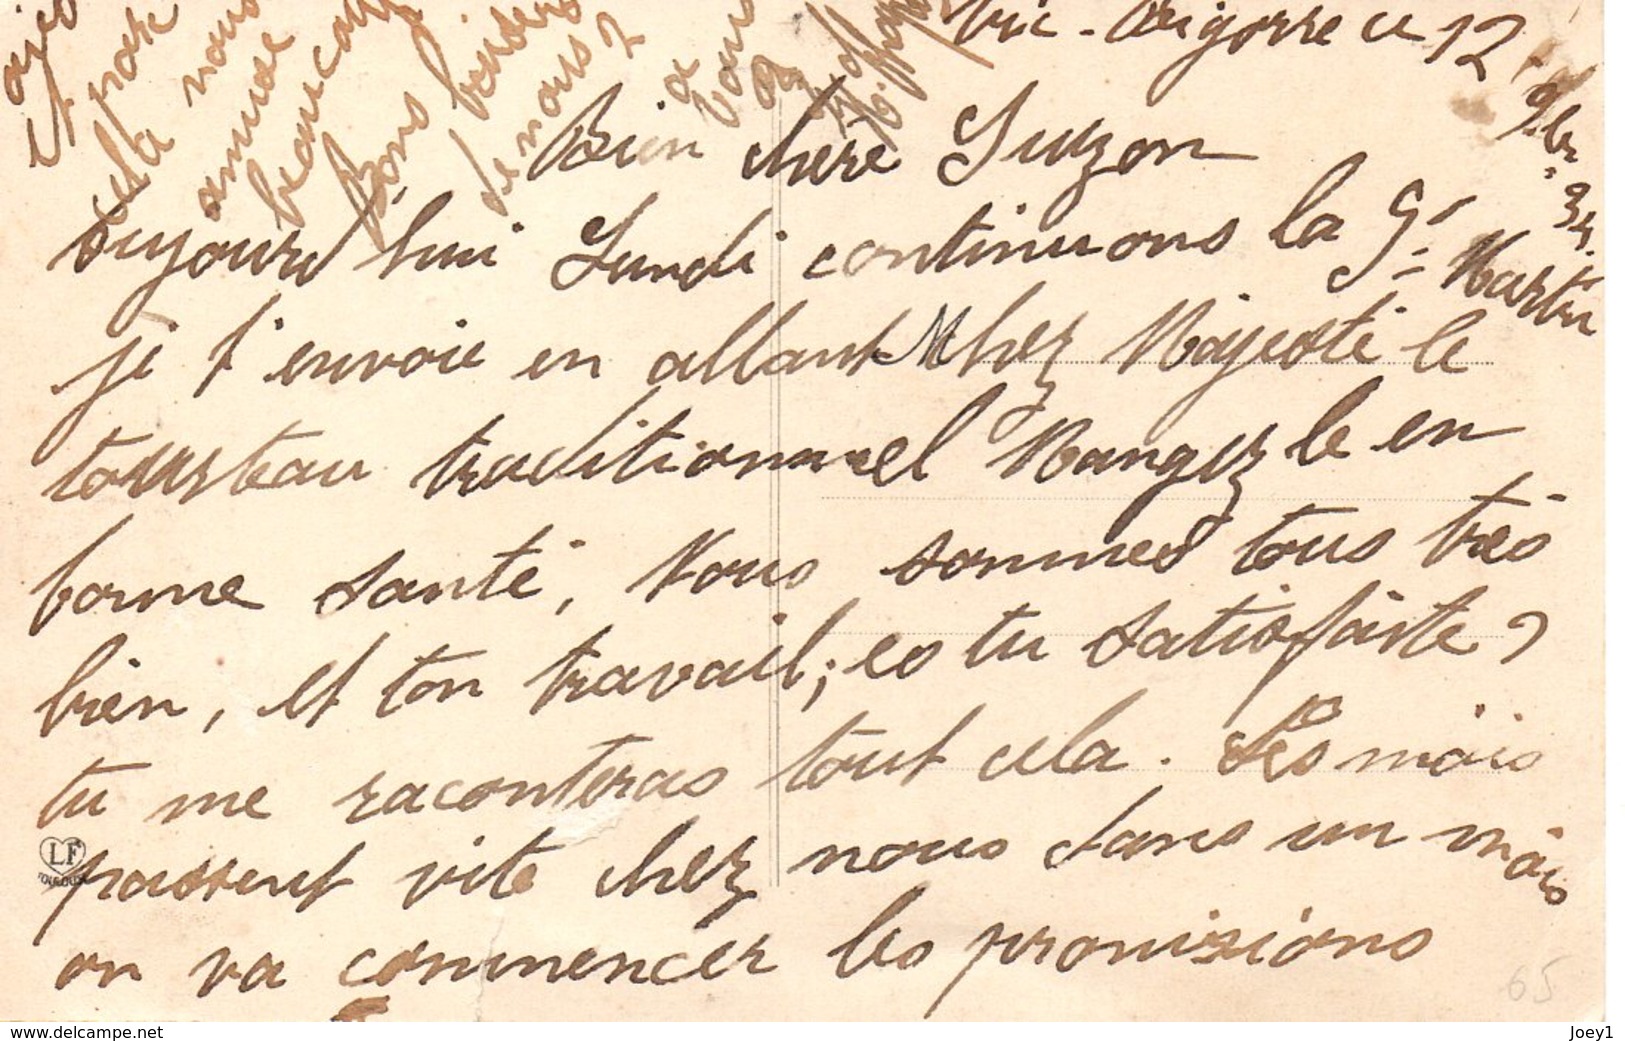 Vic-Bigorre ce 12
9bre 34.
Bien chère Suzon
Aujourd'hui Lundi continuons la St Martin
je t'envoie en allant chez Majesté le
tourteau traditionnel Mangez le en
bonne santé, Nous sommes tous très
bien, et ton travail; es tu satisfaite?
tu me raconteras tout cela. Les mois
passent vite chez nous dans un mois
on va commencer les provisions
et
cela nous
amuse
beaucoup
Bons baisers
de nous 2
à
vous
2
LF
TOULOUSE
65
www.delcampe.net
Joey1